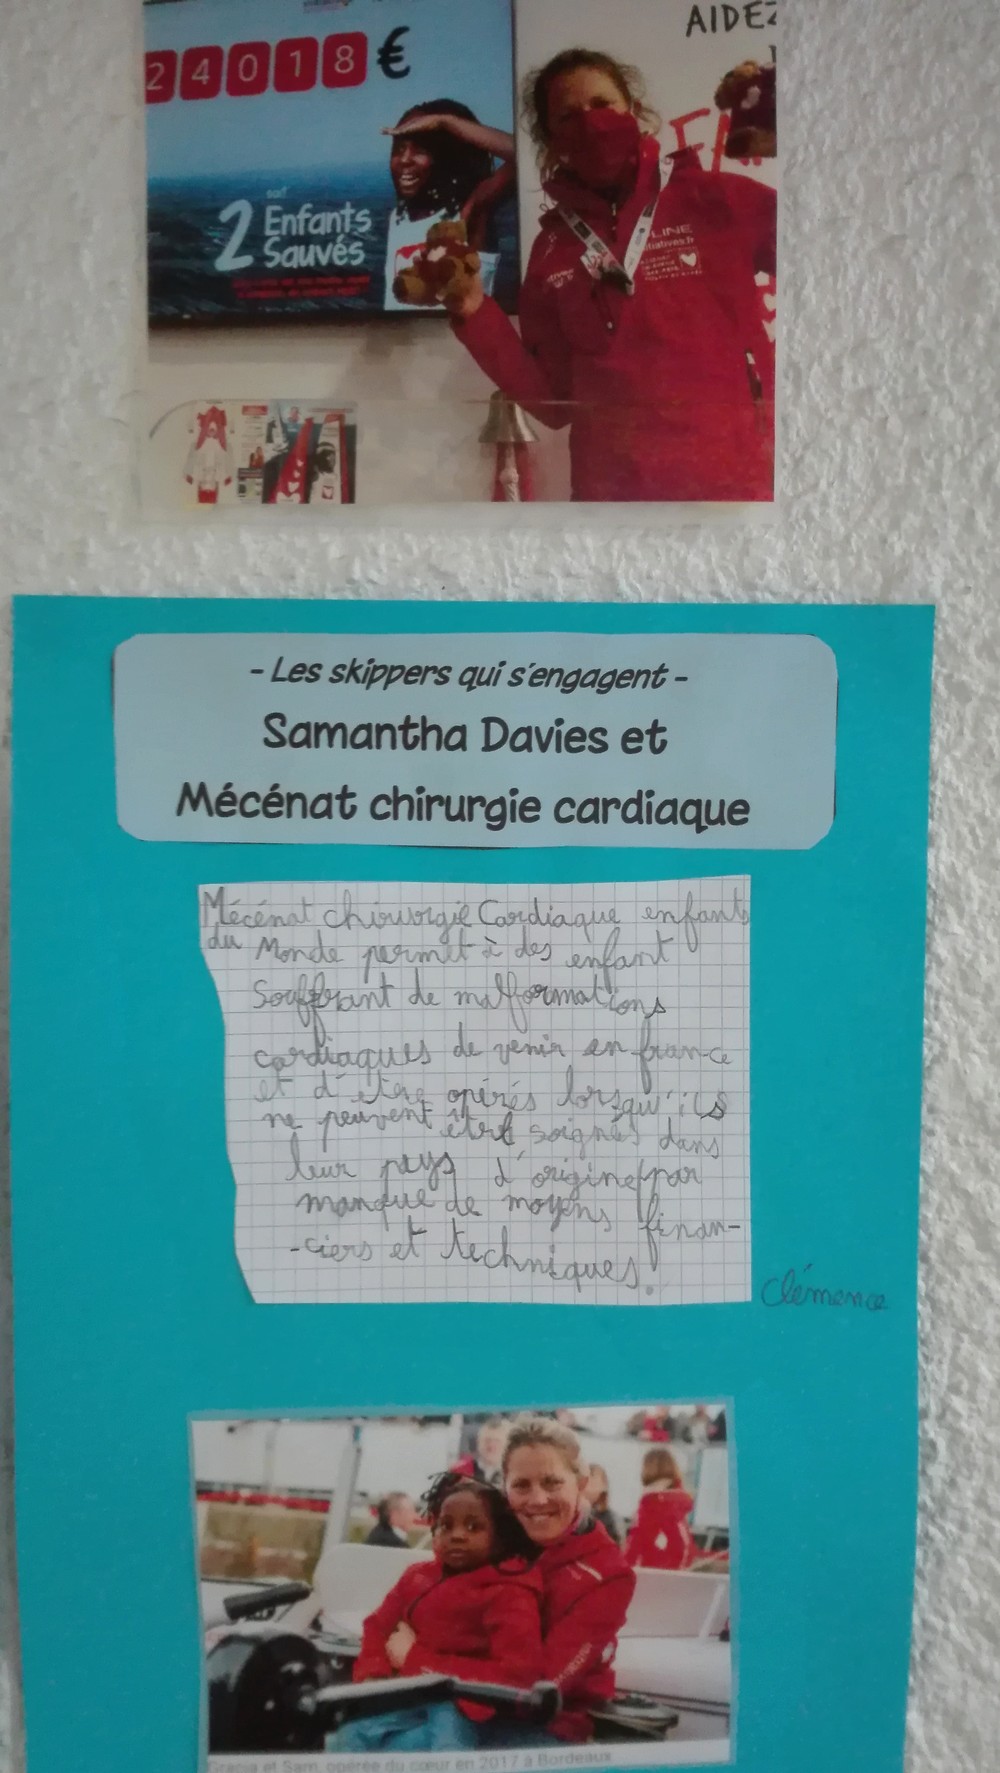 24018 €
AIDEZ
soit
2 Enfants
Sauvés
LINE
- Les skippers qui s'engagent -
Samantha Davies et
Mécénat chirurgie cardiaque
Mécénat chirurgie Cardiaque enfants
du Monde permet à des enfant
Souffrant de malformations
cardiaques de venir en france
et d'etre opérés lorsqu'ils
ne peuvent être soignés dans
leur pays d'origine par
manque de moyens finan-
-ciers et techniques.
Clémence
Gracia et Sam, opérée du cœur en 2017 à Bordeaux